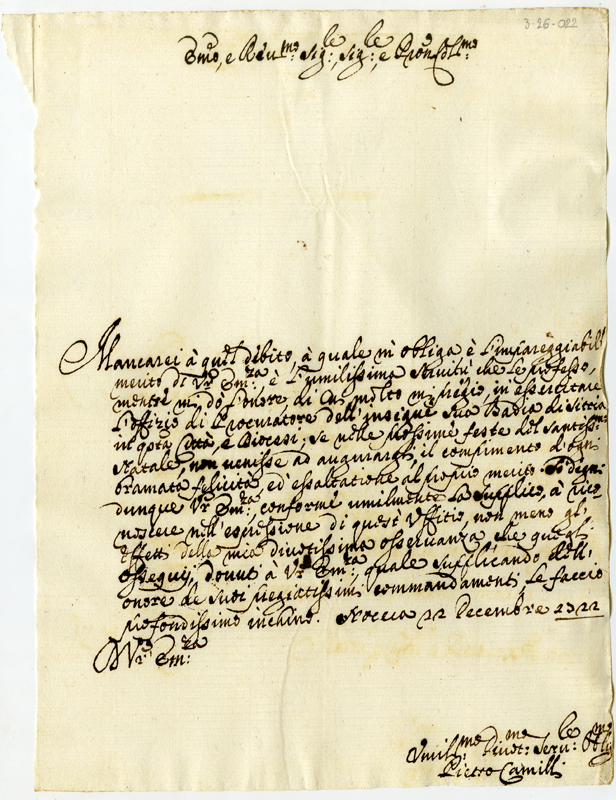 3-26-022
Em̃o, e Reu.mo Sig:, Sig:le e Pron Coll.mo
Mancarei à quel debito, à quale m'obliga è l'impareggiabil
merito di V.ra Em:za, è l'umilissima seruitù che le professo,
mentre mi dò l'onore di cui molto mi pregio, in essercitare
l'offizio di Procuratore dell'insigne sua Badia di Sitria
in q'sta Città, e Diocesi; se nelle prossime feste del Santiss.mo
Natale, non uenisse ad augurarle il compimento d'ogni
bramata felicità ed'essaltatione al proprio merito. Si degni
dunque V.ra Em:za, conforme umilmente la supplico, à rico
noscere nell'espressione di quest'Uffitio, non meno gl'
effetti della mia diuotissima osseruanza, che quegl'
ossequij, douuti à V.ra Em:za, quale supplicando dell'
onore de suoi pregiatissimi commandamenti, le faccio
profondissimo inchino. Nocera 22 Decembre 1722
D V.ra Em:za
Umil.mo Diuot:mo Seru:le Obl.mo
Pietro Camilli